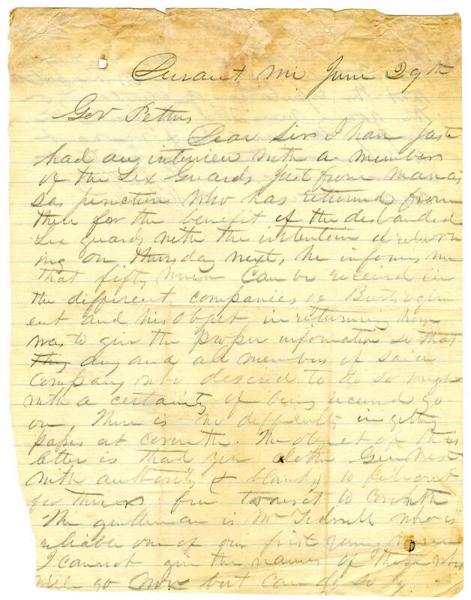 Durant, Mi June 29th
Gov Pettus
Dear Sir I have just
had an interview with a member
of the Lex Guards just from Manas
sas junction who has returned from
there for the benefit of the disbanded
Lex guards with the intention of return
ing on Thursday next, he informs me
that fifty more can be received in
the different companies of
and his object in returning here
was to give the proper information so that
any and all members of said
company who desired to do so might
with a certainty of being received go
on. There is no difficulty in getting
passes at Corinth. The object of this
letter is that you clothe
with authority &
free to Corinth
The gentleman is Mr who is
reliable one of our first young men
I cannot give the names of those who
will go now but can do so by